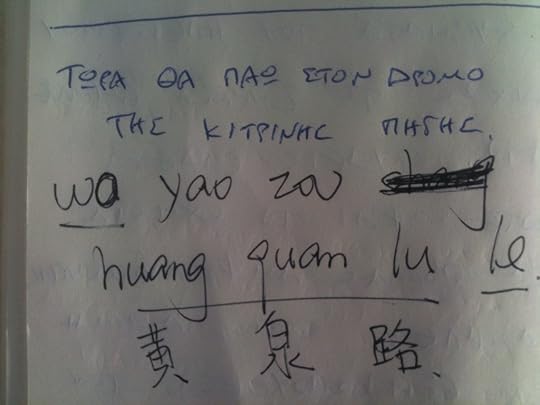 ΤΩΡΑ ΘΑ ΠΑΩ ΣΤΟΝ ΔΡΟΜΟ
ΤΗΣ ΚΙΤΡΙΝΗΣ ΠΗΓΗΣ.
wo yao zou
huang quan lu le.
黄 泉 路.